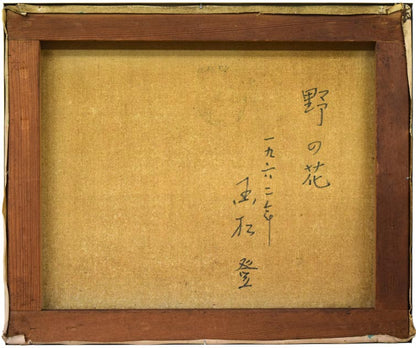 野の花
一九六二年
国松 登